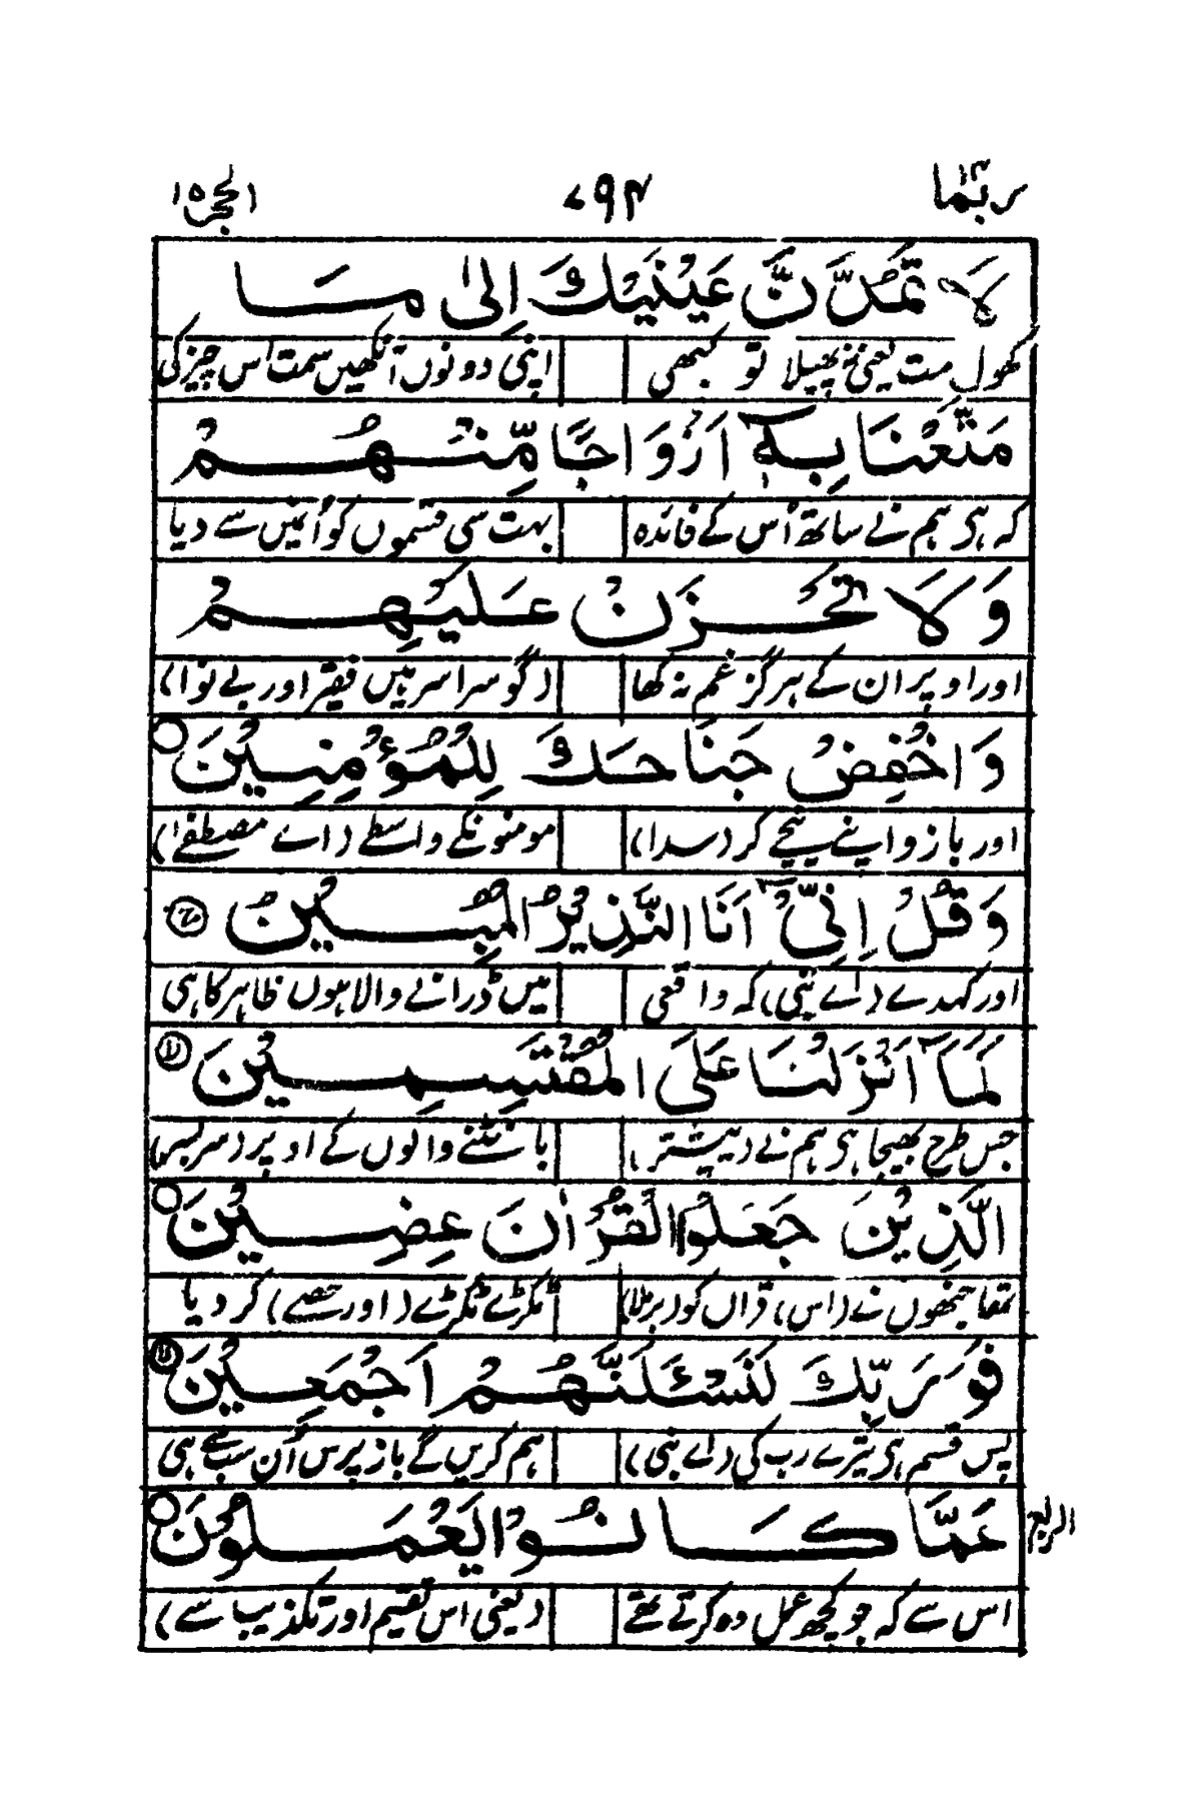 ربما ١٤ ٧٩٤ الحجر ١٥
لَا تَمُدَّنَّ عَيْنَيْكَ اِلٰى مَا
کھول مت یعنی نہ پھیلا تو کبھی اپنی دونوں آنکھیں سمت اس چیز کی
مَتَّعْنَا بِهٖٓ اَزْوَاجًا مِّنْهُمْ
کہ ہی ہم نے ساتھ اُس کے فائدہ بہت سی قسموں کو اُنمیں سے دیا
وَلَا تَحْزَنْ عَلَيْهِمْ
اور اوپر ان کے ہرگز غم نہ کھا (گو سراسر ہیں فقیر اور بے نوا)
وَاخْفِضْ جَنَاحَكَ لِلْمُؤْمِنِيْنَ
اور بازو اپنے نیچے کر (سدا) مومنونکے واسطے (اے مصطفےٰ)
وَقُلْ اِنِّىْٓ اَنَا النَّذِيْرُ الْمُبِيْنُ
اور کہدے (اے نبی) کہ واقعی میں ڈرانے والا ہوں ظاہر کا ہی
كَمَآ اَنْزَلْنَا عَلَى الْمُقْتَسِمِيْنَ
جس طرح بھیجا ہی ہم نے (پیشتر) بانٹنے والوں کے اوپر (سربسر)
الَّذِيْنَ جَعَلُوا الْقُرْاٰنَ عِضِيْنَ
تھا جنھوں نے (اس) قراں کو (برملا) ٹکڑے ٹکڑے (اور حصے) کر دیا
فَوَرَبِّكَ لَنَسْئَلَنَّهُمْ اَجْمَعِيْنَ
پس قسم ہی تیرے رب کی (اے نبی) ہم کریں گے باز پرس اُن سب سے ہی
عَمَّا كَانُوْا يَعْمَلُوْنَ
الربع
اس سے کہ جو کچھ عمل وہ کرتے تھے (یعنی اس تقسیم اور تکذیب سے)